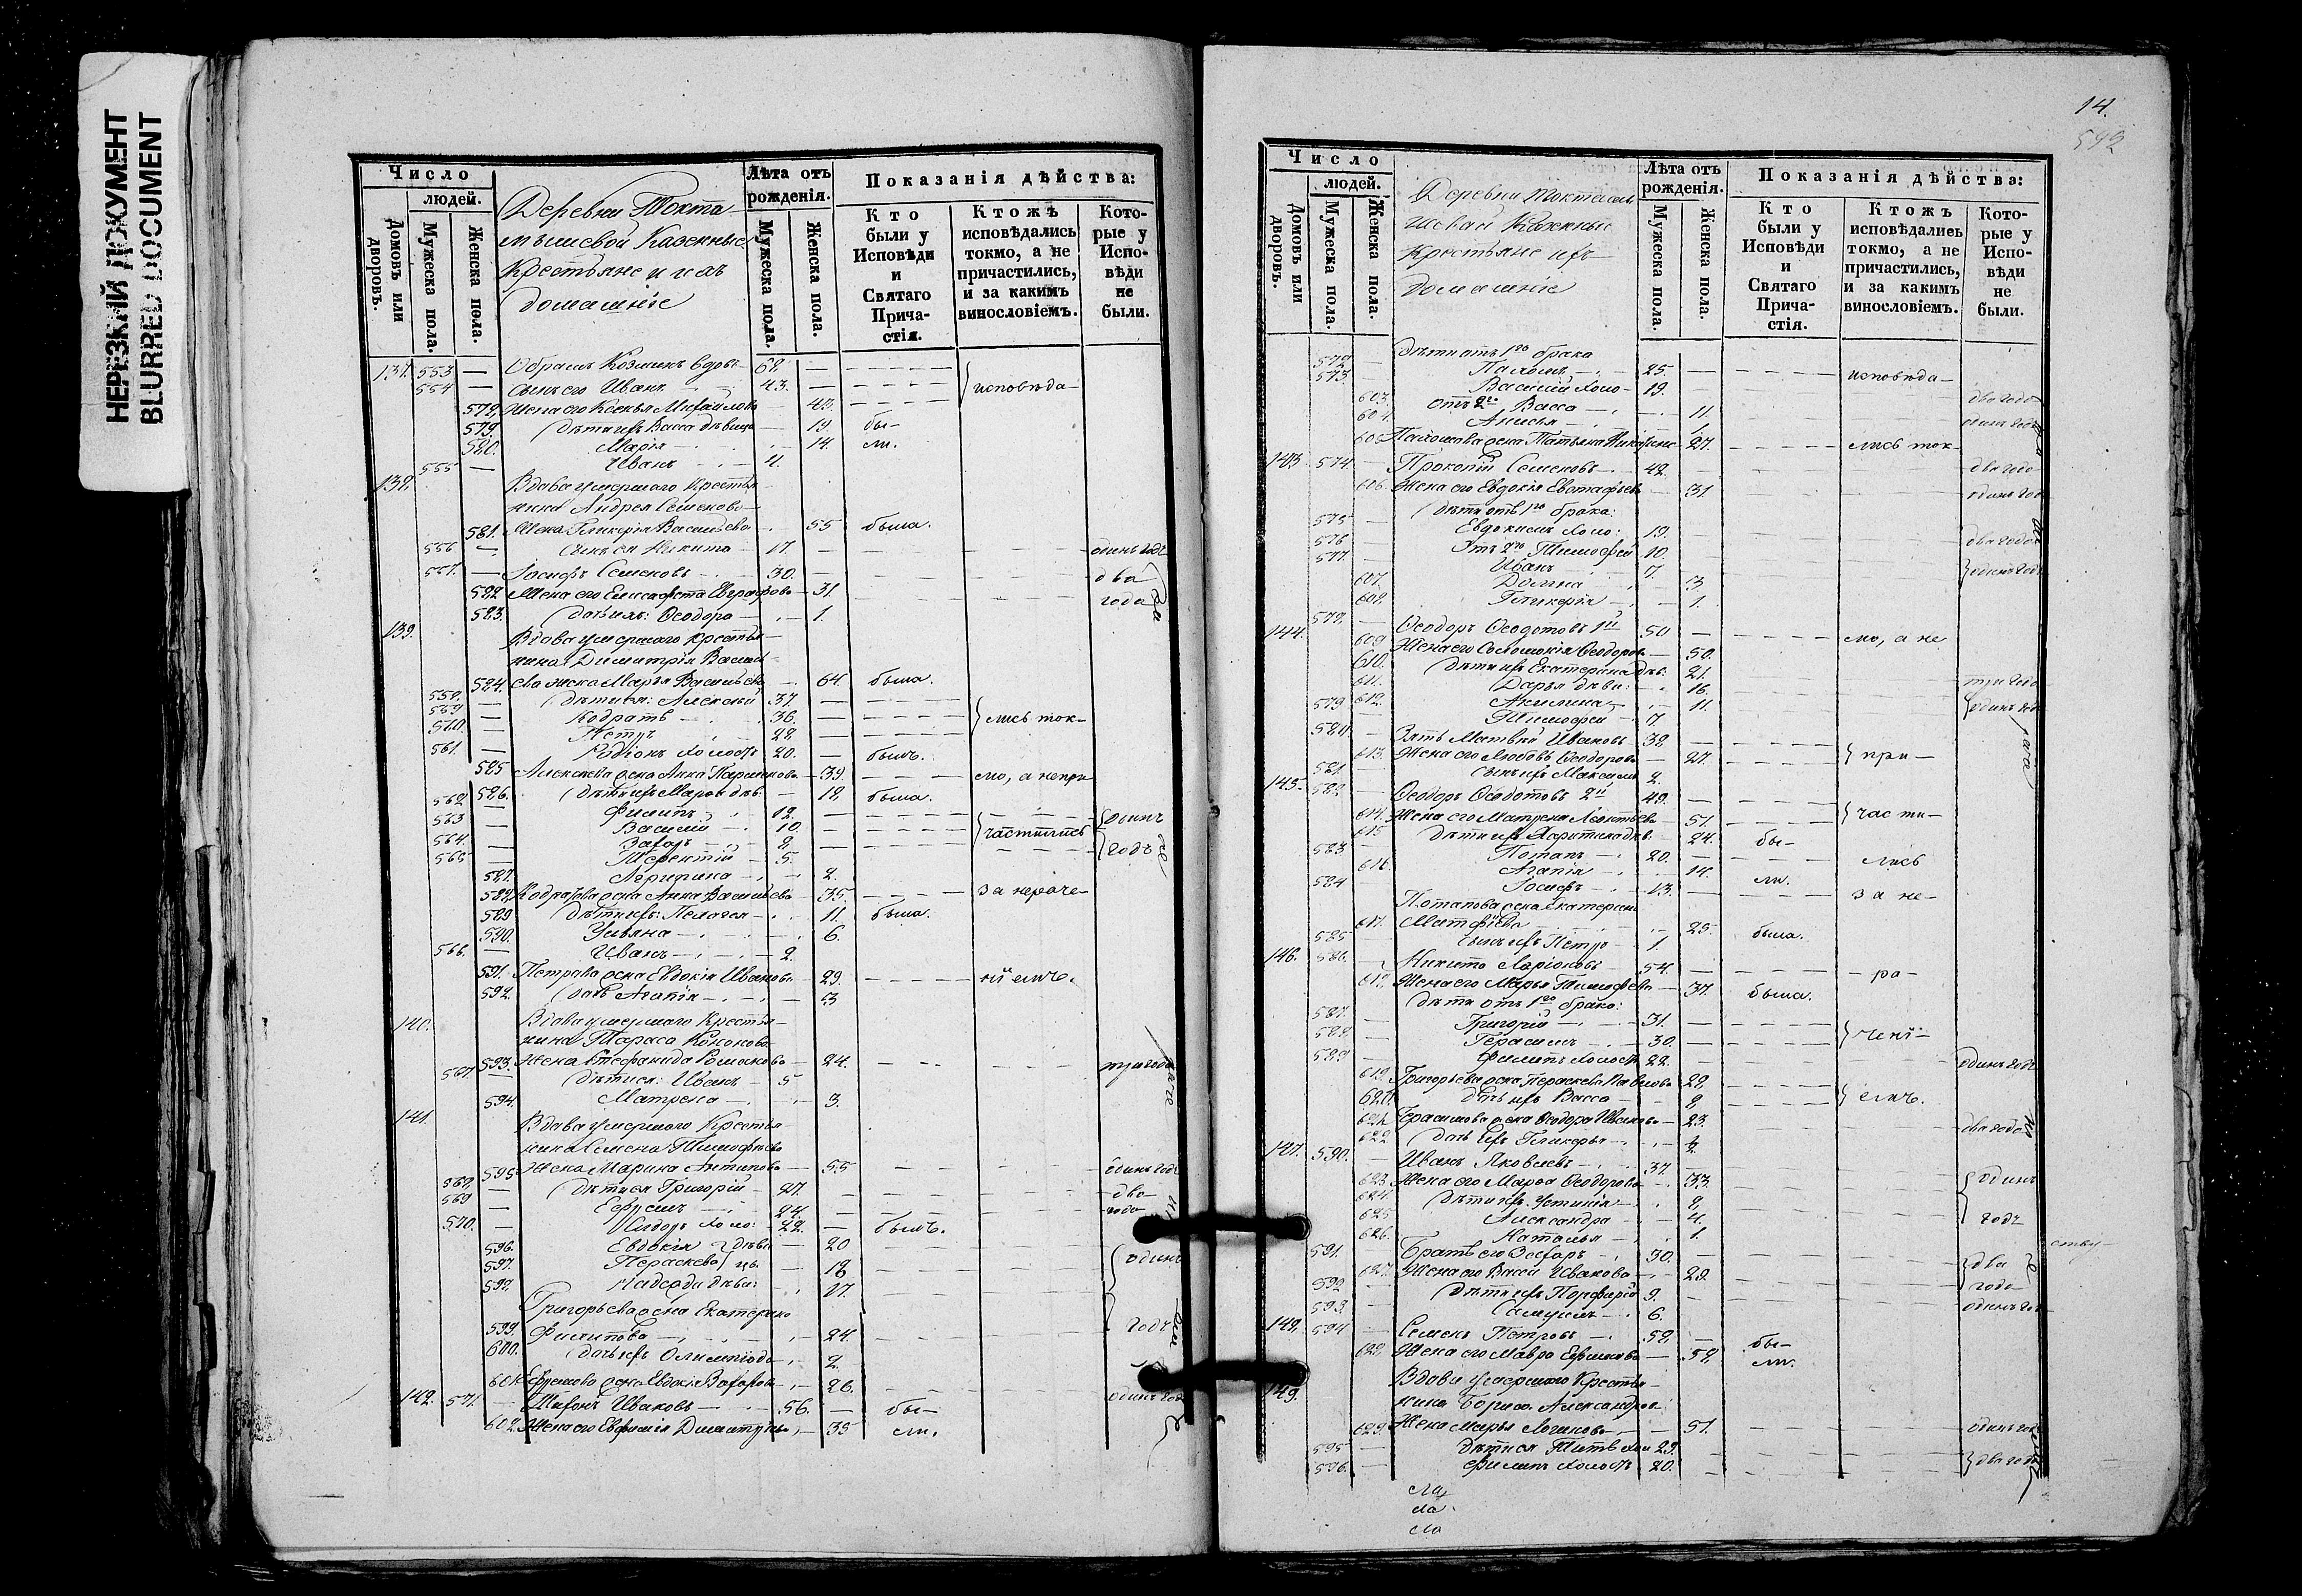 НЕРЕЗКИЙ ДОКУМЕНТ
BLURRED DOCUMENT
Число
людей.
Домовъ или дворовъ.
Мужеска пола.
Женска пола.
Деревни Токта-
мышевой Казенные
Крестьяне и ихъ
домашніе
Лѣта отъ рожденія.
Мужеска пола.
Женска пола.
Показанія дѣйства:
Кто были у Исповѣди и Святаго Прича-стія.
Ктожъ исповѣдались токмо, а не причастились, и за какимъ винословіемъ.
Кото-рые у Испо-вѣди не были.
137. 553 — Козминъ вдовъ — 68. —
554 — сынъ его Иванъ 43. — исповѣда-
578. Жена его Ксенья Михайлова 42.
579 Дѣти ихъ Васса дѣвица — 19. бы-
580. Марія 14. ли.
555 — Иванъ 4.
138. Вдова умершаго Крестья-
нина Андрея Семенова
581. Жена Гликерія Васильева 55 была.
556 — сынъ ея Никита 17. — одинъ годъ
557. — Іосифъ Семеновъ 30. — два
582 Жена его Елисавета 31. года
583. дочь ихъ: Ѳеодора 1.
139. Вдова умершаго крестья-
нина Димитрія Василь-
584. ева жена Марья Васильева 64. была.
558. — дѣти ея: Алексѣй 37. —
559 — Кодратъ 36. — лись ток-
560. — Петръ 28. —
561. — Родіонъ холостъ 20. — былъ.
585 Алексѣева жена Анна 39. мо, а непри-
586. дѣти ихъ Марѳа дѣв. 18. была.
562. — Филипъ 12. — одинъ
563 — Василій 10. — частились
564. — Захаръ 8. — годъ
565 — Терентій 5.
587. 2.
588. Кодратова жена Анна Васильева 35. за нераче-
589 дѣти ихъ: Пелагея 11. была.
590. Ульяна 6.
566. — Иванъ 2.
591. Петрова жена Евдокія Иванова 29. ніемъ.
592. дочь Агапія 3
140. Вдова умершаго Крестья-
нина Тараса Кононова
593. Жена Стефанида Романова 24. три года
567. — дѣти ея: Иванъ 5
594. Матрена 3.
141. Вдова умершаго Крестья-
нина Семена Тимофѣева
595 Жена Марина Антипова 55 одинъ годъ
568. — дѣти ея Григорій 27. — два
569 — Ефремъ 24. года
570. — Исидоръ холо: 22. — былъ.
596. Евдокія 20 одинъ
597. Параскева 18
598. Надежда дѣви: 17.
Григорьева жена Екатерина
599. Филипова 24. годъ
600. дочь ихъ Олимпіада 2.
601 Ефремова жена Евдокія 26. одинъ годъ
142. 571. Тихонъ Ивановъ 56. — бы-
602. Жена его Евфимія Димитріева 35 ли.
14.
592
Число
людей.
Домовъ или дворовъ.
Мужеска пола.
Женска пола.
Деревни Токтамы-
шевой Казенные
Крестьяне ихъ
домашніе
Лѣта отъ рожденія.
Мужеска пола.
Женска пола.
Показанія дѣйства:
Кто были у Исповѣди и Святаго Прича-стія.
Ктожъ исповѣдались токмо, а не причастились, и за какимъ винословіемъ.
Кото-рые у Испо-вѣди не были.
дѣти отъ 1го брака
572 — 25. — исповѣда-
573 — Василій холо- 19. два года
603. отъ 2го Васса 11.
604. Анисья 1. одинъ годъ
605. жена Татьяна 27. лись ток-
143. 574. — Прокопій Семеновъ 42. два года
606. Жена его Евдокія Евстафьева 31. одинъ годъ
дѣти отъ 1го брака:
575 — Евдокимъ холо: 19. два года
576 — Отъ 2го Тимофей 10.
577. — Иванъ 7. одинъ годъ
607. Домна 3
608. Гликерія 1.
144. 578. — Ѳеодоръ Ѳедотовъ 1й 50 — мо, а не
609 Жена его Соломонія Ѳеодорова 50.
610. дѣти ихъ Екатерина дѣв: 21.
611. Дарья дѣви: 16. три года
612. Акилина 11. одинъ годъ
579 — Тимофей 7.
580. — Зять Матвѣй Ивановъ 38.
613. Жена его Любовь Ѳеодорова 27. при-
581. — сынъ ихъ Максимъ 2.
145. 582 — Ѳеодоръ Ѳедотовъ 2й 49. —
614. Жена его Матрена Леонтьева 51. части-
615 дѣти ихъ Харитина дѣв. 24. бы-
583 — Потапъ 20. — лись
616. Агапія 14. ли.
584 — Іосифъ 13. за не-
Потапова жена Екатерина
617. Матфіева 25. была.
585 — сынъ ихъ Петръ 1.
146. 586. — Никита Ларіоновъ 54. — ра-
618. Жена его Марья Тимофѣева 37. была.
дѣти отъ 1го брака:
587. — Григорій 31. —
588. — Герасимъ 30. — чені-
589 — Филипъ холостъ 22. одинъ годъ
619. Григорьева жена Параскева 28.
620. дочь ихъ Васса 8. емъ.
621. Герасимова жена Ѳеодора Иванова 23. два года
622 дочь ихъ Гликерья
147. 590. — Иванъ Яковлевъ 37.
623. Жена его Марѳа Ѳеодорова 33. одинъ
624. дѣти ихъ: Устинія 8.
625 Александра 4. годъ
626. Наталья 1.
591. — Братъ его Захаръ 30. два
627. Жена его Васса Иванова 29.
592 — дѣти ихъ Порфирій 9. года
593. — Самуилъ 6. одинъ годъ
148. 594 — Семенъ Петровъ 58. — бы-
628. Жена его Мавра 58. ли.
149. Вдова умершаго Крестья-
нина Бориса Александрова
629. Жена Марья Логинова 51. одинъ годъ
595 — дѣти ея Титъ хол 29.
596. — Филипъ холостъ 20. два года
сла
ла
сла